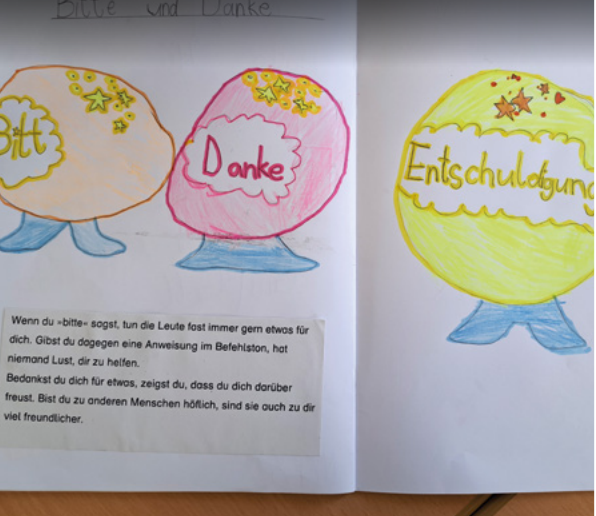 Bitte und Danke
Bitt
Danke
Entschuldigung
Wenn du »bitte« sagst, tun die Leute fast immer gern etwas für
dich. Gibst du dagegen eine Anweisung im Befehlston, hat
niemand Lust, dir zu helfen.
Bedankst du dich für etwas, zeigst du, dass du dich darüber
freust. Bist du zu anderen Menschen höflich, sind sie auch zu dir
viel freundlicher.